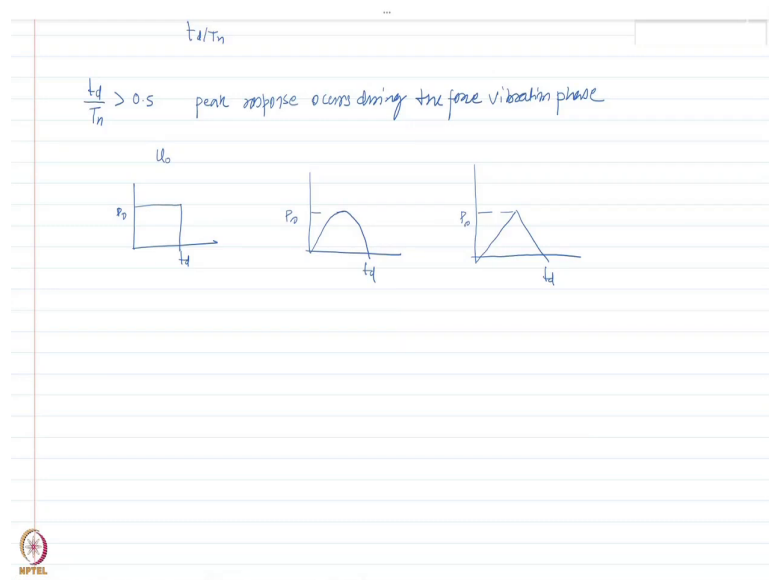 td/Tn
td/Tn > 0.5 peak response occurs during the force vibration phase
u₀
P₀ td
P₀ td
P₀ td
NPTEL